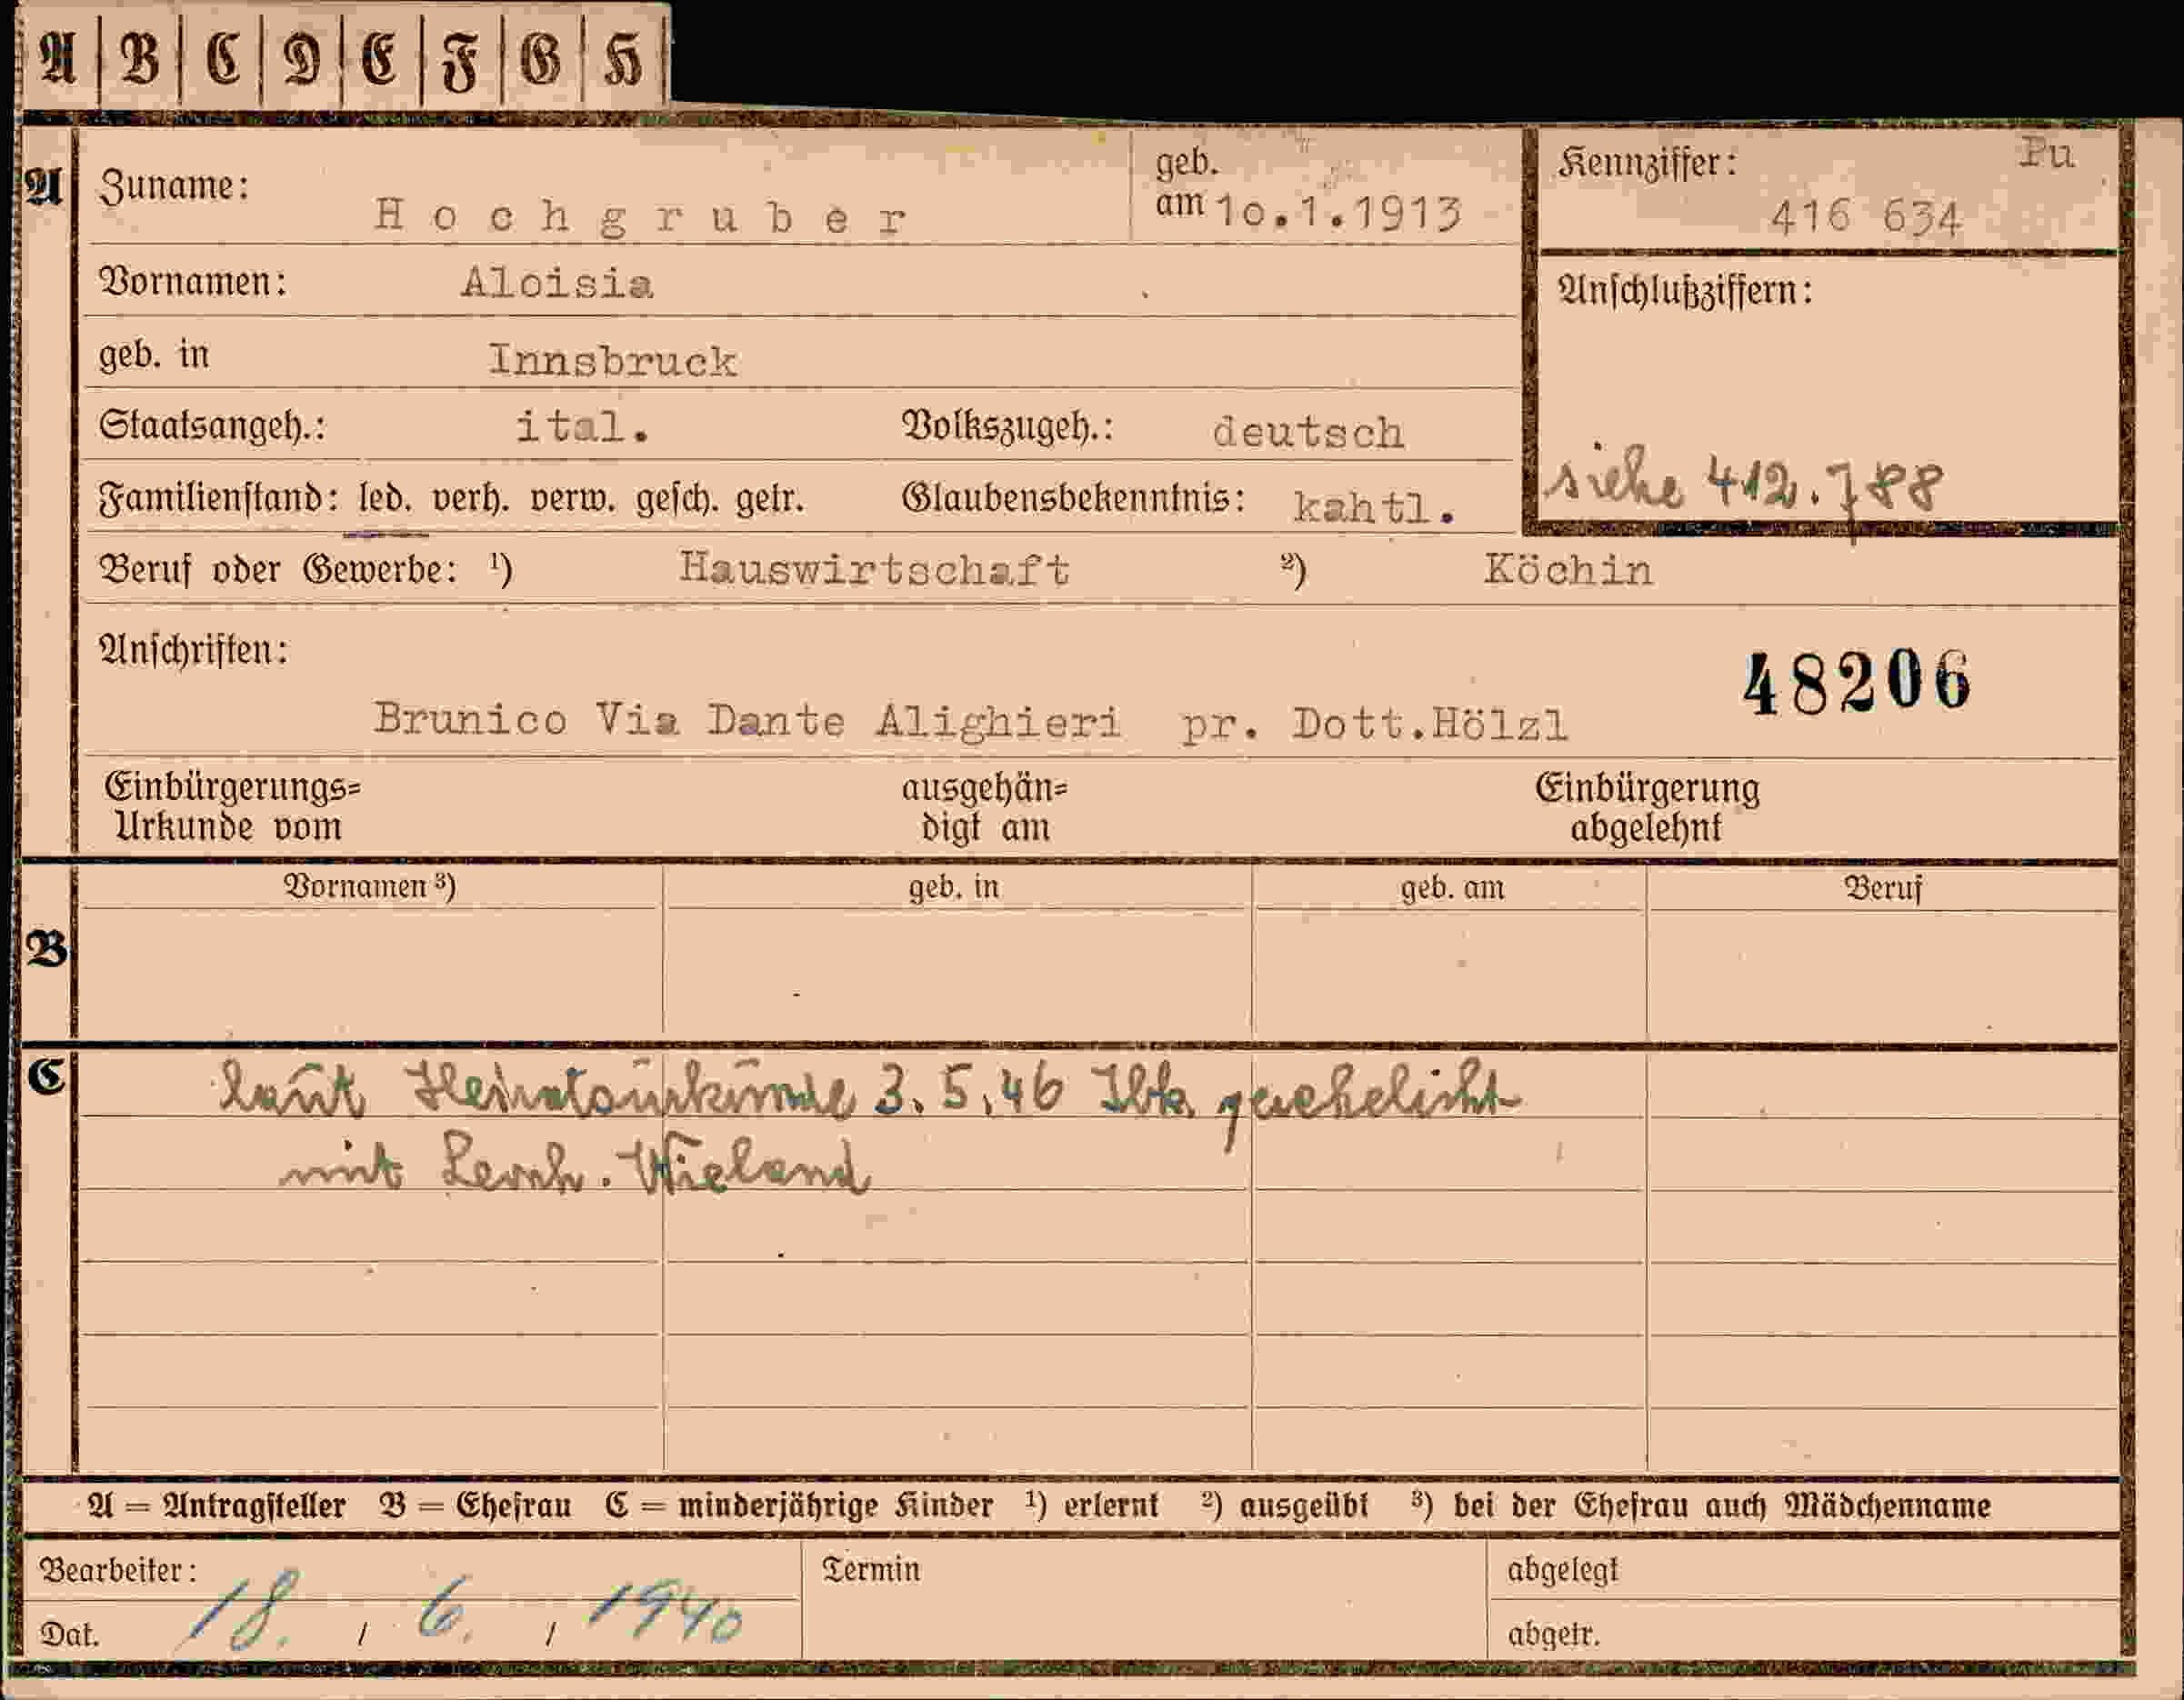 A B C D E F G H
A Zuname: Hochgruber geb. am 1o.1.1913
Kennziffer: Pu
416 634
Vornamen: Aloisia
Anschlußziffern:
geb. in Innsbruck
Staatsangeh.: ital. Volkszugeh.: deutsch
siehe 412.788
Familienstand: led. verh. verw. gesch. getr. Glaubensbekenntnis: kahtl.
Beruf oder Gewerbe: ¹) Hauswirtschaft ²) Köchin
Anschriften:
48206
Brunico Via Dante Alighieri pr. Dott.Hölzl
Einbürgerungs= ausgehän= Einbürgerung
Urkunde vom digt am abgelehnt
Vornamen ³) geb. in geb. am Beruf
B
C laut Heiratsurkunde 3.5.46 Ibk. geehelicht
mit Wieland
A = Antragsteller B = Ehefrau C = minderjährige Kinder ¹) erlernt ²) ausgeübt ³) bei der Ehefrau auch Mädchenname
Bearbeiter: Termin abgelegt
Dat. 18. / 6. / 1940 abgetr.